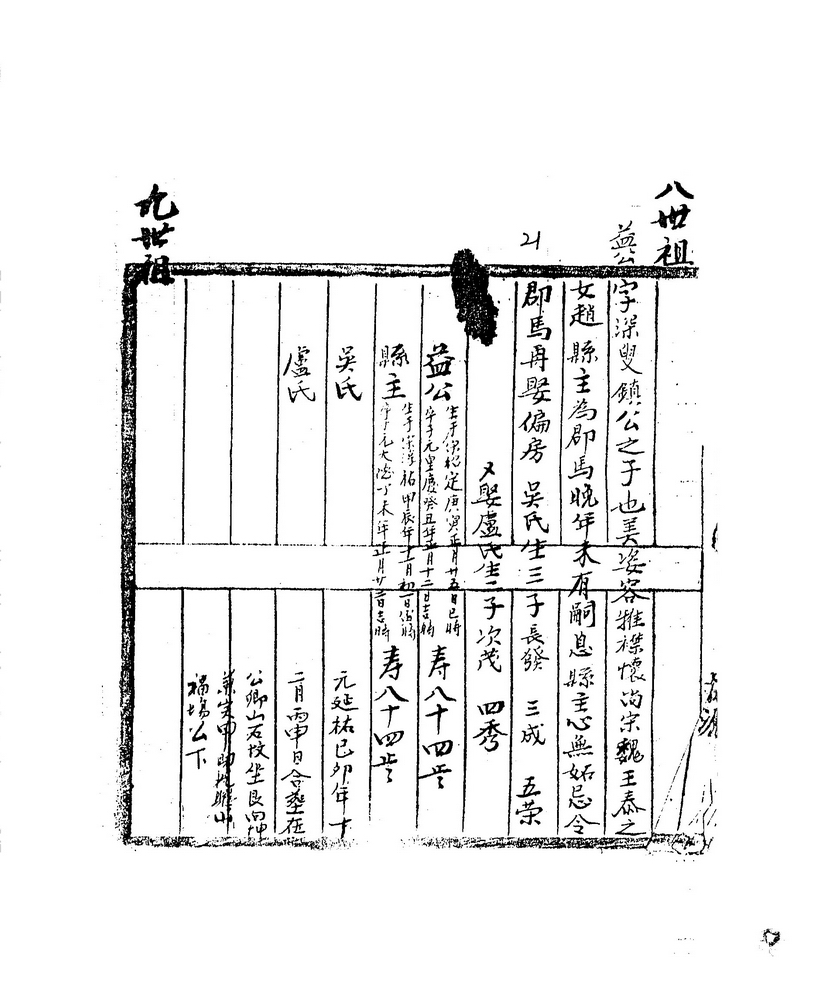 八世祖
益公字深叟鎮公之子也美姿容雅襟懷尚宗魏王泰之
女趙縣主為郡馬晚年未有嗣息縣主心無妬忌令
21
郡馬再娶偏房 吳氏生三子長發 三成 五荣
又娶盧氏生二子次茂 四秀
益公 生于宋紹定庚寅年正月廿五日巳時
卒于元皇慶癸丑年正月十二日吉時 寿八十四岁
縣主 生于宋淳祐甲辰年十二月初一日 時
卒于元大德丁未年正月廿三日吉時 寿八十四岁
吳氏 元延祐己卯年十
盧氏 二月丙申日合塟在
公卿山石坟坐艮向坤
兼寅申
福場公下
九世祖